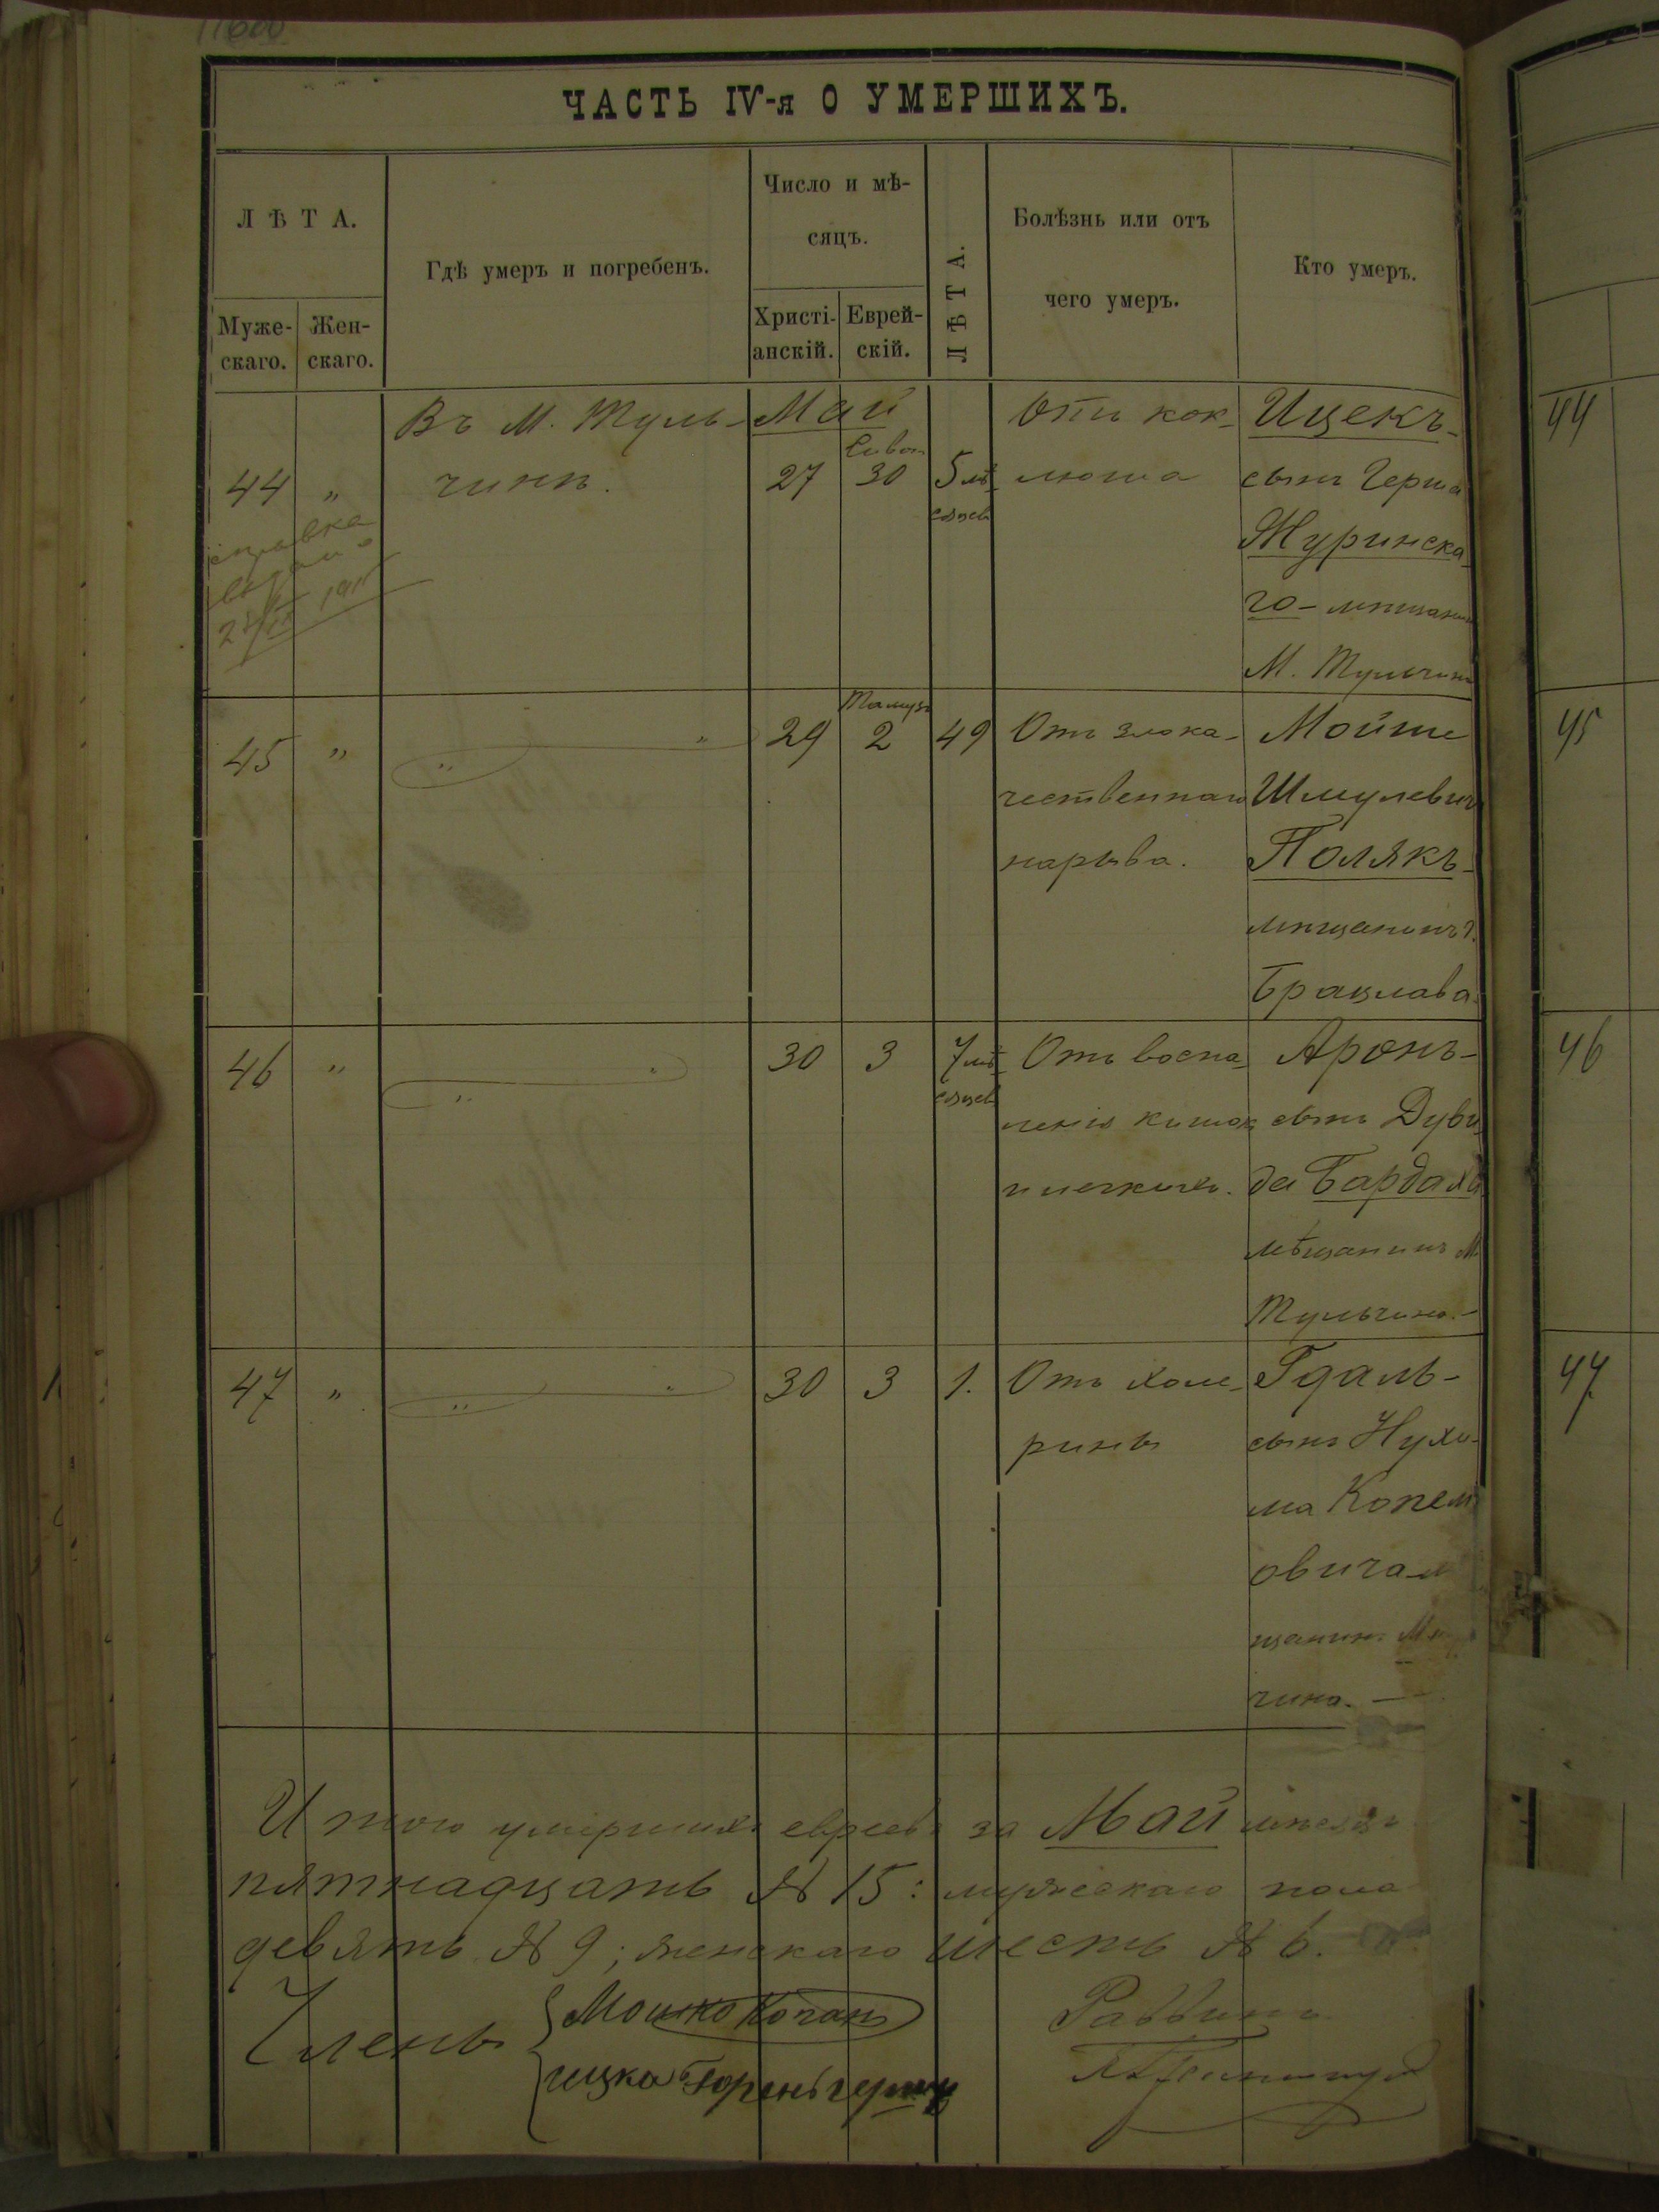 11600
ЧАСТЬ IV-я О УМЕРШИХЪ.
ЛѢТА.
Муже-
скаго.
Жен-
скаго.
Гдѣ умеръ и погребенъ.
Число и мѣ-
сяцъ.
Христі-
анскій.
Еврей-
скій.
ЛѢТА.
Болѣзнь или отъ
чего умеръ.
Кто умеръ.
44 "
Въ М. Туль-
чинѣ.
Май
27
Сивон
30
5 мѣ-
сяцев
Отъ кок-
люша
Ицекъ-
сынъ Герша
Журинска-
го - мѣщанин
М. Тульчина
справка
выдан
1915
45 " " "
29
Тамузъ
2
49
Отъ злока-
чественнаго
нарыва.
Мойше
Шмулевич
Полякъ-
мѣщанинъ г.
Брацлава.
46 " " "
30
3
7 мѣ-
сяцев
Отъ воспа-
ленія кишок
Аронъ-
сынъ Дуви-
да Бардаха
мѣщанинъ М.
Тульчина.-
47 " " "
30
3
1.
Отъ холе-
рины
Гдаль-
сынъ Нухи-
ма Копель
овича-м
щанинъ М.
чина. —
Итого умершихъ евреевъ за Май мѣсяцъ
пятнадцать № 15: мужескаго пола
девять № 9; женскаго шесть № 6.
Члены
Мошко Коган
ицко
Раввинъ
44
45
46
47